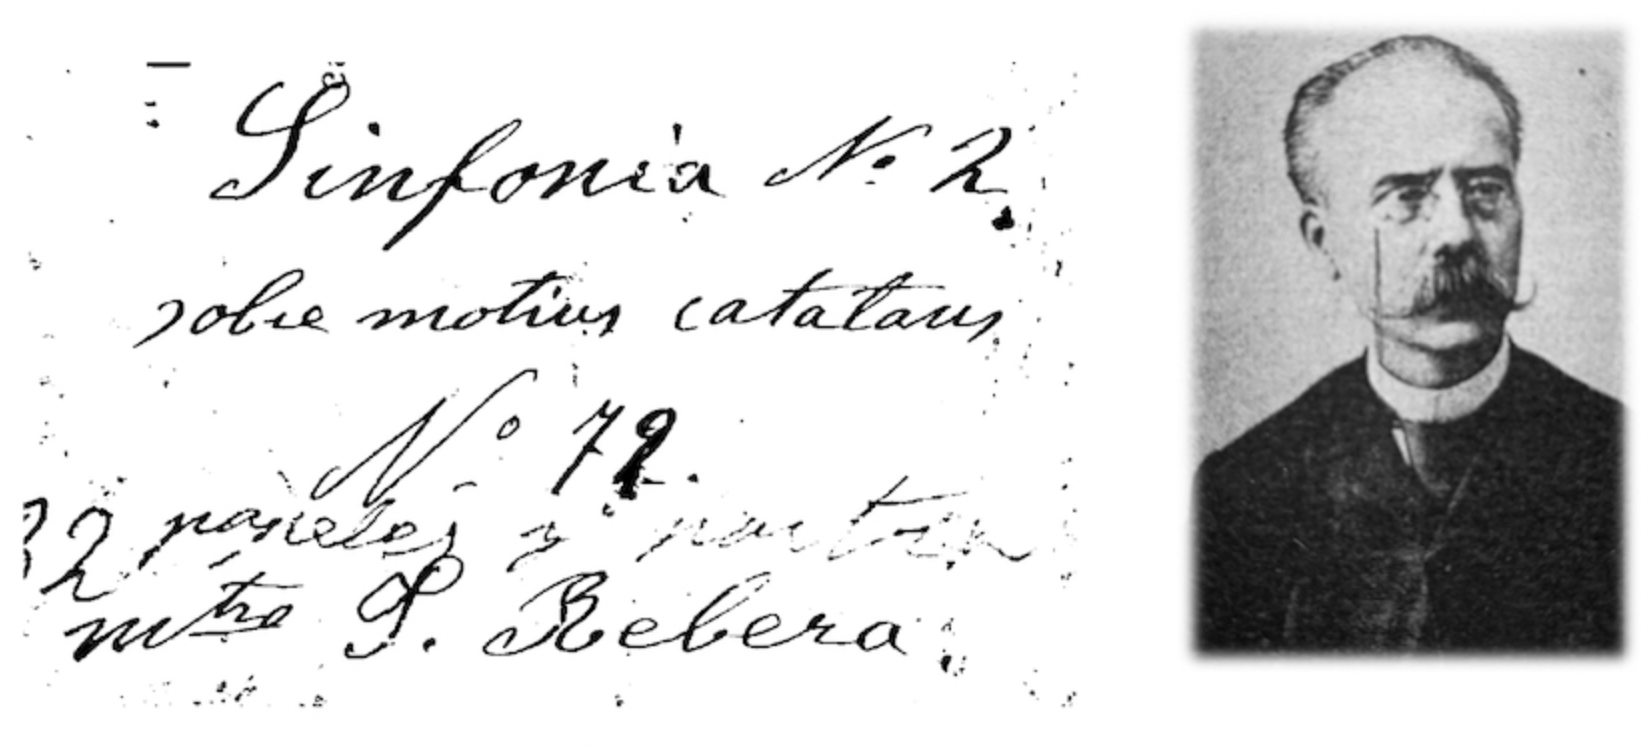 Sinfonía Nº 2.
sobre motivos catalans
Nº 72.
32 papeles y partcn
mtro P. Rebera